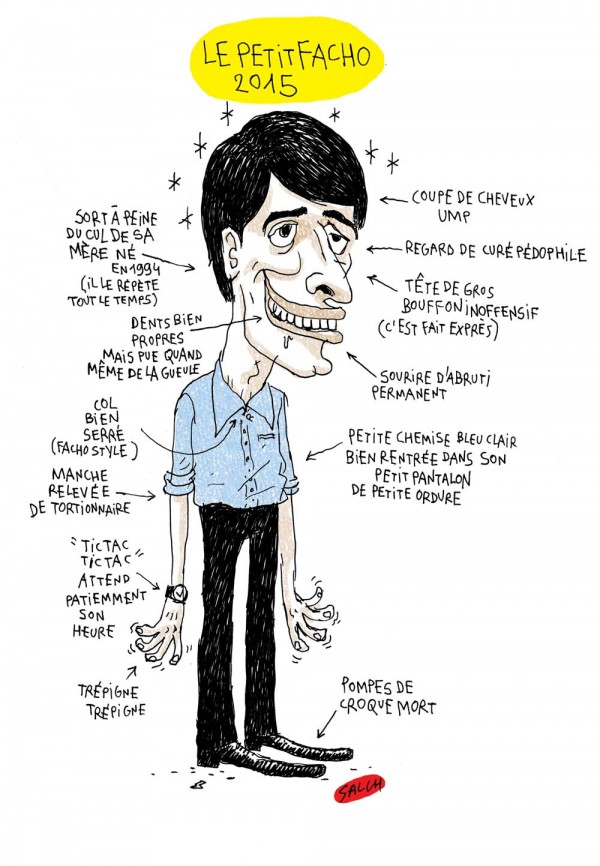 LE PETIT FACHO
2015
COUPE DE CHEVEUX
UMP
SORT À PEINE
DU CUL DE SA
MÈRE NÉ
EN 1994
(IL LE RÉPÈTE
TOUT LE TEMPS)
REGARD DE CURÉ PÉDOPHILE
TÊTE DE GROS
BOUFFON INOFFENSIF
(C'EST FAIT EXPRÈS)
DENTS BIEN
PROPRES
MAIS PUE QUAND
MÊME DE LA GUEULE
SOURIRE D'ABRUTI
PERMANENT
COL
BIEN
SERRÉ
(FACHO STYLE)
PETITE CHEMISE BLEU CLAIR
BIEN RENTRÉE DANS SON
PETIT PANTALON
DE PETITE ORDURE
MANCHE
RELEVÉE
DE TORTIONNAIRE
"TIC TAC
TIC TAC"
ATTEND
PATIEMMENT
SON
HEURE
TRÉPIGNE
TRÉPIGNE
POMPES DE
CROQUE MORT
SALCH